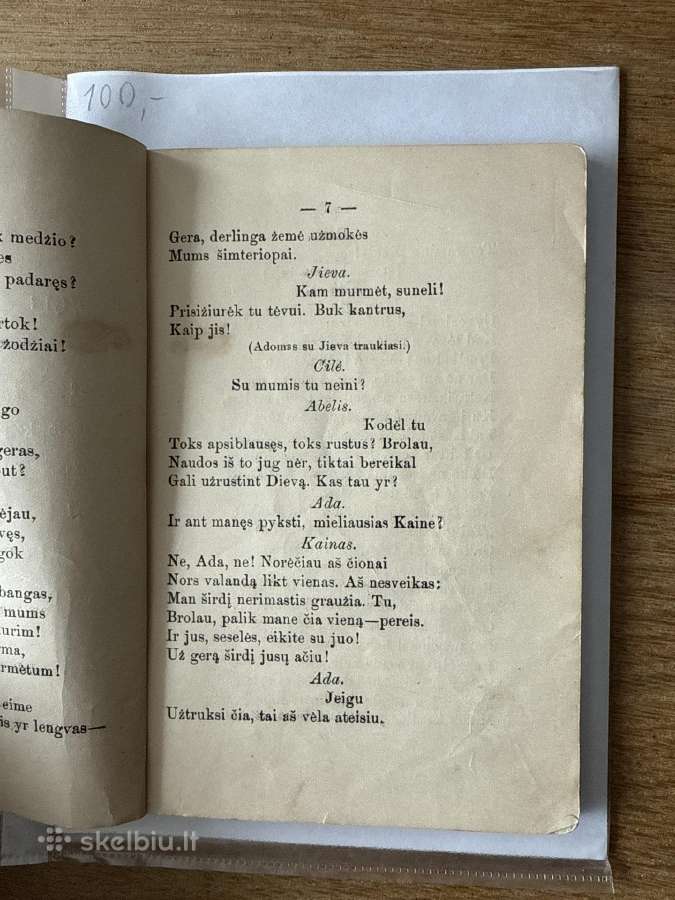 100,-
medžio?
padaręs?
žodžiai!
mums
eime
yr lengvas—
— 7 —
Gera, derlinga žemė užmokės
Mums šimteriopai.
Jieva.
Kam murmėt, suneli!
Prisižiurėk tu tėvui. Buk kantrus,
Kaip jis!
(Adomas su Jieva traukiasi.)
Cilė.
Su mumis tu neini?
Abelis.
Kodėl tu
Toks apsiblausęs, toks rustus? Brolau,
Naudos iš to jug nėr, tiktai bereikal
Gali užrustint Dievą. Kas tau yr?
Ada.
Ir ant manęs pyksti, mieliausias Kaine?
Kainas.
Ne, Ada, ne! Norėčiau aš čionai
Nors valandą likt vienas. Aš nesveikas:
Man širdį nerimastis graužia. Tu,
Brolau, palik mane čia vieną—pereis.
Ir jus, seselės, eikite su juo!
Už gerą širdį jusų ačiu!
Ada.
Jeigu
Užtruksi čia, tai aš vėla ateisiu.
skelbiu.lt